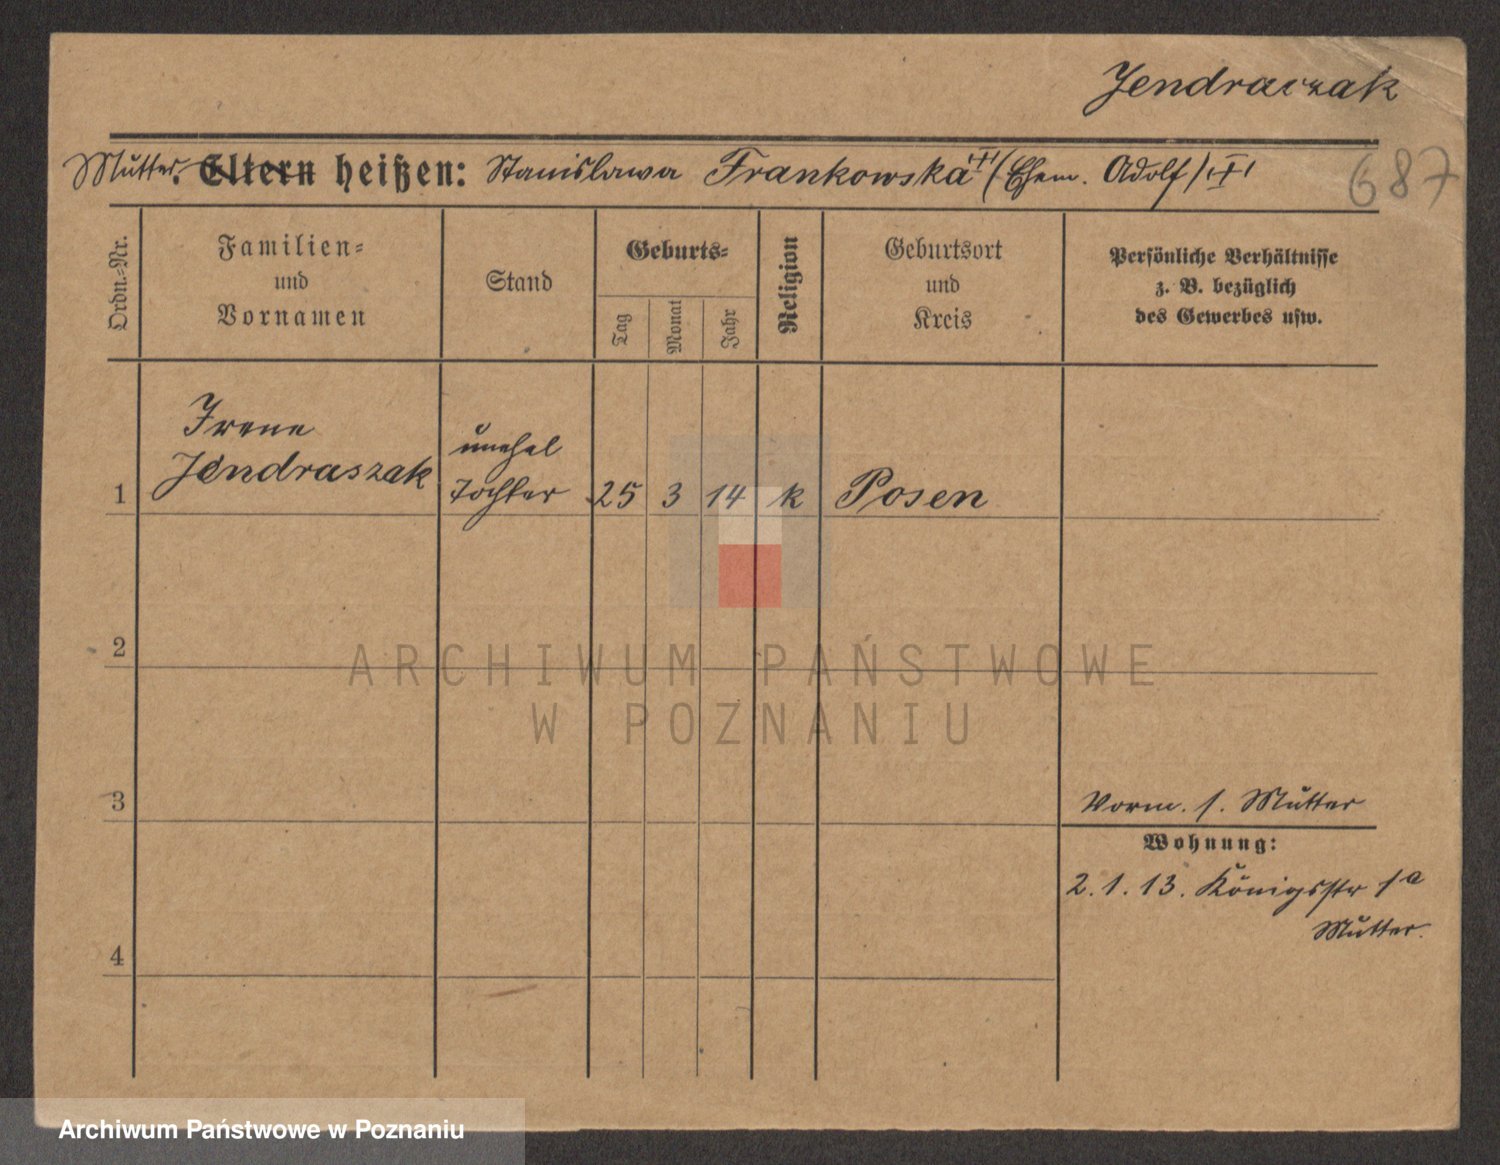 Jendraczak
Mutter. Eltern heißen: Stanislawa Frankowska (Ehem. Adolf)
687
Ordn.-Nr.
Familien-
und
Vornamen
Stand
Geburts-
Tag
Monat
Jahr
Religion
Geburtsort
und
Kreis
Persönliche Verhältnisse
z. B. bezüglich
des Gewerbes usw.
1
Irene
Jendraszak
unehel
Tochter
25
3
14
k
Posen
2
ARCHIWUM PAŃSTWOWE
W POZNANIU
3
Vorm. s. Mutter
Wohnung:
2.1.13. Königsstr 1a
Mutter.
4
Archiwum Państwowe w Poznaniu